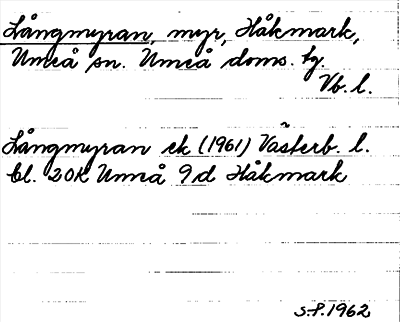 Långmyran, myr, Håkmark,
Umeå sn. Umeå doms. hg.
Vb. l.
Långmyran ek (1961) Västerb. l.
bl. 20K Umeå 9d Håkmark
S.P. 1962